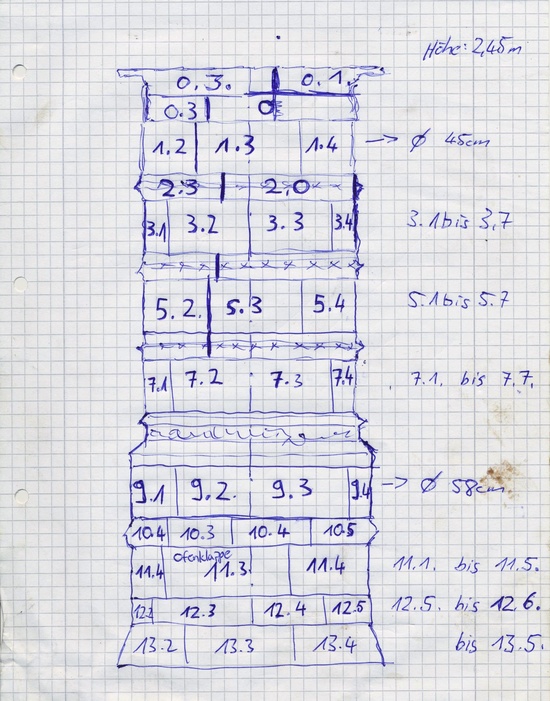 Höhe: 2,45m
0.3. 0.1.
0.3 0
1.2 1.3 1.4 -> Ø 45cm
2.3 2.0
3.1 3.2 3.3 3.4 3.1 bis 3.7
5.2. 5.3 5.4 5.1 bis 5.7
7.1 7.2 7.3 7.4 7.1. bis 7.7.
9.1 9.2. 9.3 9.4 -> Ø 58cm
10.4 10.3 10.4 10.5
Ofenklappe
11.4 11.3. 11.4 11.1. bis 11.5.
12.2 12.3 12.4 12.5 12.5. bis 12.6.
13.2 13.3 13.4 bis 13.5.